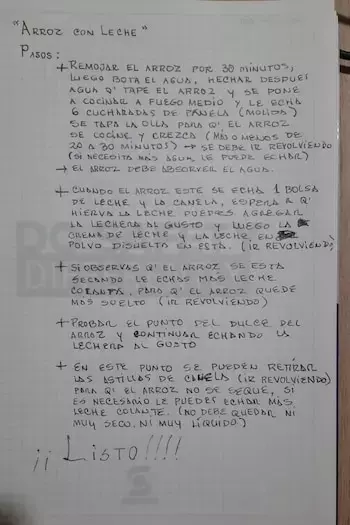 "ARROZ CON LECHE"
PASOS:
+ REMOJAR EL ARROZ POR 30 MINUTOS,
LUEGO BOTA EL AGUA, HECHAR DESPUES
AGUA Q' TAPE EL ARROZ Y SE PONE
A COCINAR A FUEGO MEDIO Y LE ECHA
6 CUCHARADAS DE PANELA (MOLIDA)
SE TAPA LA OLLA PARA Q' EL ARROZ
SE COCINE Y CREZCA (MAS O MENOS DE
20 A 30 MINUTOS) → SE DEBE IR REVOLVIENDO
(SI NECESITA MAS AGUA LE PUEDE ECHAR)
→ EL ARROZ DEBE ABSORVER EL AGUA.
+ CUANDO EL ARROZ ESTE SE ECHA 1 BOLSA
DE LECHE Y LA CANELA, ESPERA A Q'
HIERVA LA LECHE PUEDES AGREGAR
LA LECHERA AL GUSTO Y LUEGO LA
CREMA DE LECHE Y LA LECHE EN
POLVO DISUELTA EN ESTA. (IR REVOLVIENDO)
+ SI OBSERVAS Q' EL ARROZ SE ESTA
SECANDO LE ECHAS MAS LECHE
COLANTA, PARA Q' EL ARROZ QUEDE
MAS SUELTO (IR REVOLVIENDO)
+ PROBAR EL PUNTO DEL DULCE DEL
ARROZ Y CONTINUAR ECHANDO LA
LECHERA AL GUSTO
+ EN ESTE PUNTO SE PUEDEN RETIRAR
LAS ASTILLAS DE CANELA (IR REVOLVIENDO)
PARA Q' EL ARROZ NO SE SEQUE, SI
ES NECESARIO LE PUEDES ECHAR MAS
LECHE COLANTE. (NO DEBE QUEDAR NI
MUY SECO, NI MUY LIQUIDO)
¡¡ LISTO!!!!